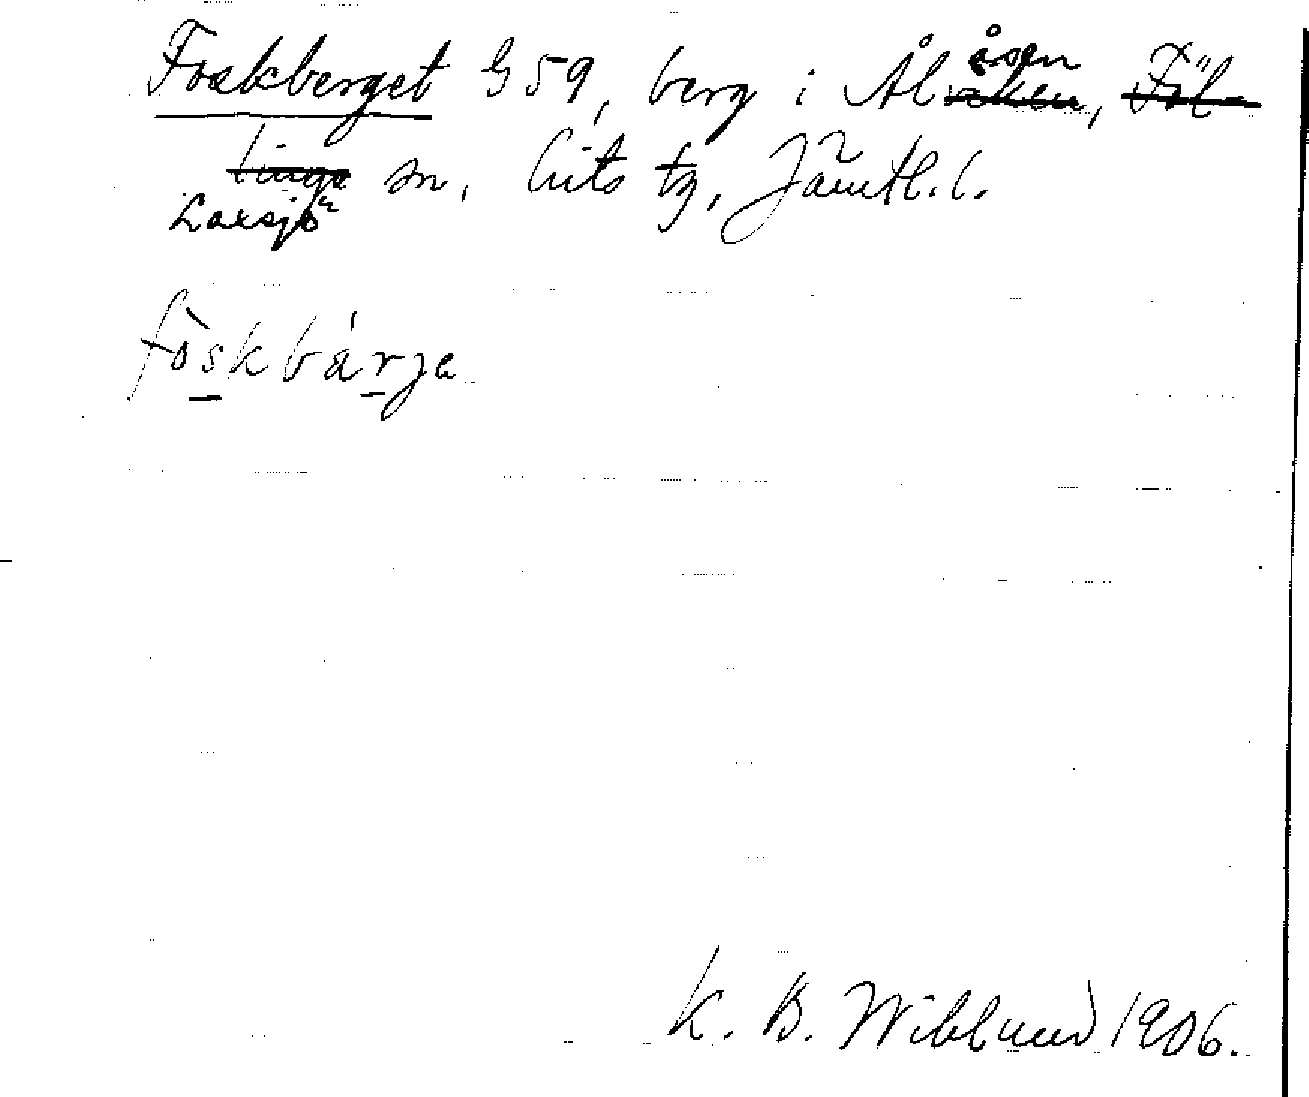 Foskberget G 59, berg i Ålåsen, Föl-
linge sn, Lits tg, Jämtl. l.
Laxsjö
fòskbárje
K. B. Wiklund 1906.